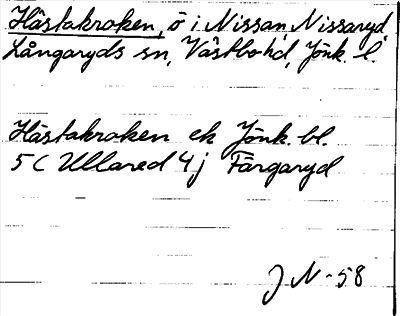 Hästakroken, ö i Nissan, Nissaryd,
Långaryds sn, Västbo hd, Jönk. l.
Hästakroken ek Jönk. bl.
5C Ullared 4j Färgaryd
JN-58